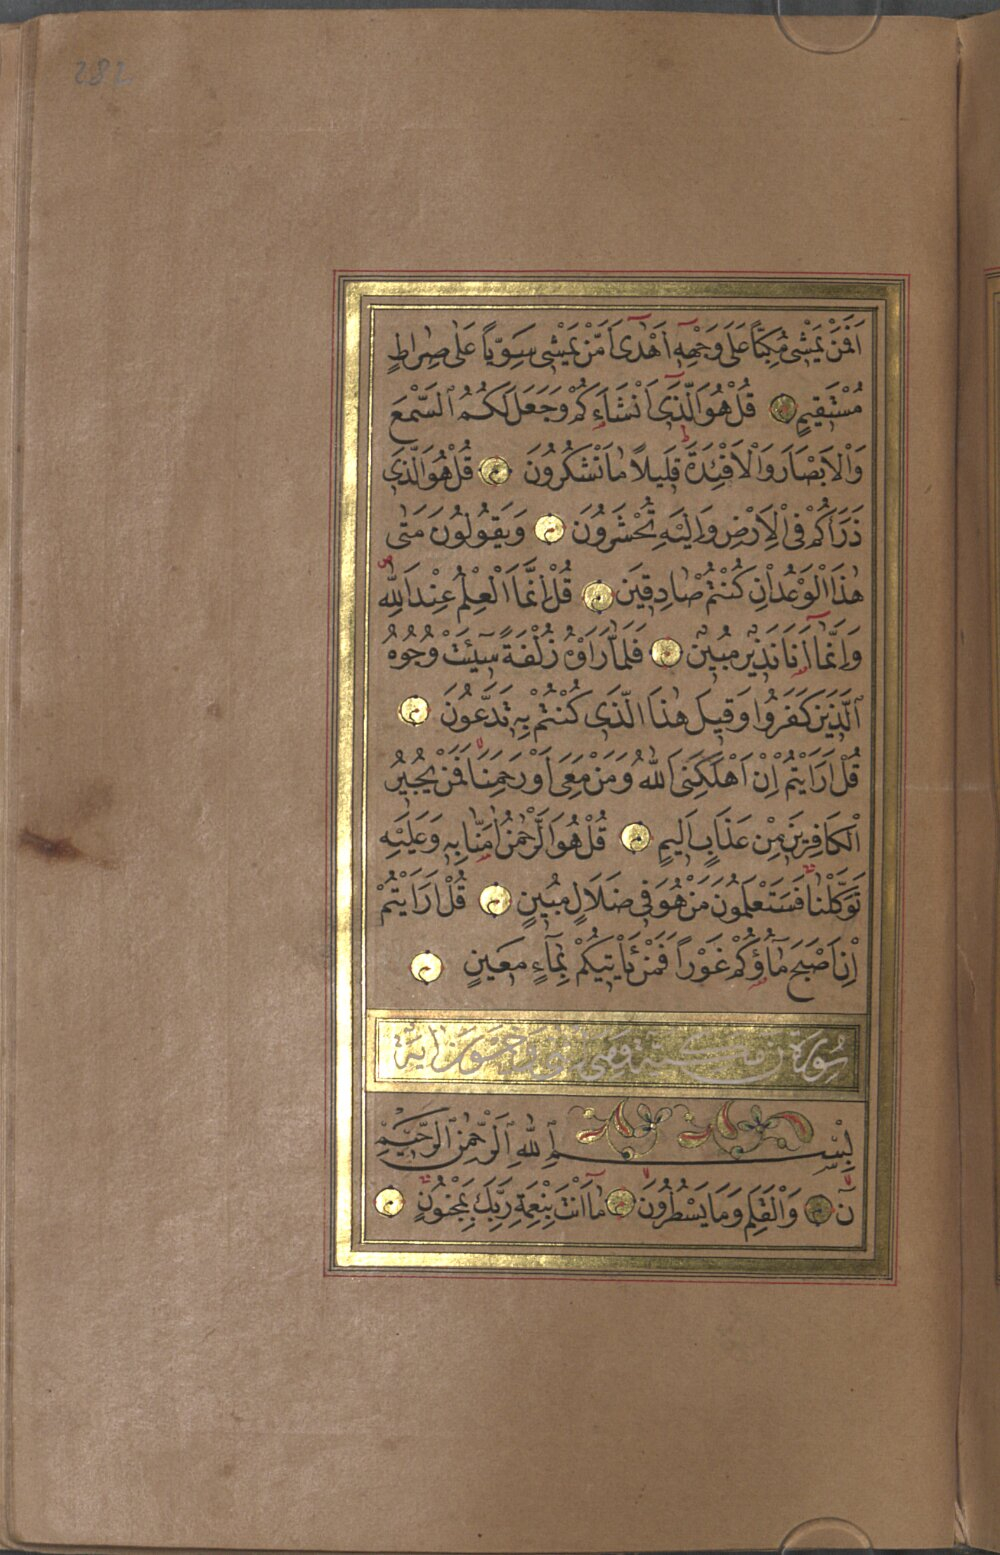 282
اَفَمَنْ يَمْشٖى مُكِبًّا عَلٰى وَجْهِهٖٓ اَهْدٰٓى اَمَّنْ يَمْشٖى سَوِيًّا عَلٰى صِرَاطٍ
مُسْتَقٖيمٍ قُلْ هُوَ الَّذٖٓى اَنْشَاَكُمْ وَجَعَلَ لَكُمُ السَّمْعَ
وَالْاَبْصَارَ وَالْاَفْئِدَةَ قَلٖيلًا مَا تَشْكُرُونَ قُلْ هُوَ الَّذٖى
ذَرَاَكُمْ فِى الْاَرْضِ وَاِلَيْهِ تُحْشَرُونَ وَيَقُولُونَ مَتٰى
هٰذَا الْوَعْدُ اِنْ كُنْتُمْ صَادِقٖينَ قُلْ اِنَّمَا الْعِلْمُ عِنْدَ اللّٰهِ
وَاِنَّمَٓا اَنَا نَذٖيرٌ مُبٖينٌ فَلَمَّا رَاَوْهُ زُلْفَةً سٖٓيئَتْ وُجُوهُ
الَّذٖينَ كَفَرُوا وَقٖيلَ هٰذَا الَّذٖى كُنْتُمْ بِهٖ تَدَّعُونَ
قُلْ اَرَاَيْتُمْ اِنْ اَهْلَكَنِىَ اللّٰهُ وَمَنْ مَعِىَ اَوْ رَحِمَنَا فَمَنْ يُجٖيرُ
الْكَافِرٖينَ مِنْ عَذَابٍ اَلٖيمٍ قُلْ هُوَ الرَّحْمٰنُ اٰمَنَّا بِهٖ وَعَلَيْهِ
تَوَكَّلْنَا فَسَتَعْلَمُونَ مَنْ هُوَ فٖى ضَلَالٍ مُبٖينٍ قُلْ اَرَاَيْتُمْ
اِنْ اَصْبَحَ مَٓاؤُ۬كُمْ غَوْرًا فَمَنْ يَاْتٖيكُمْ بِمَٓاءٍ مَعٖينٍ
سُورَةُ ن مكية وهى ثنتان وخمسون اية
بِسْمِ اللّٰهِ الرَّحْمٰنِ الرَّحٖيمِ
نٓ وَالْقَلَمِ وَمَا يَسْطُرُونَ مَٓا اَنْتَ بِنِعْمَةِ رَبِّكَ بِمَجْنُونٍ